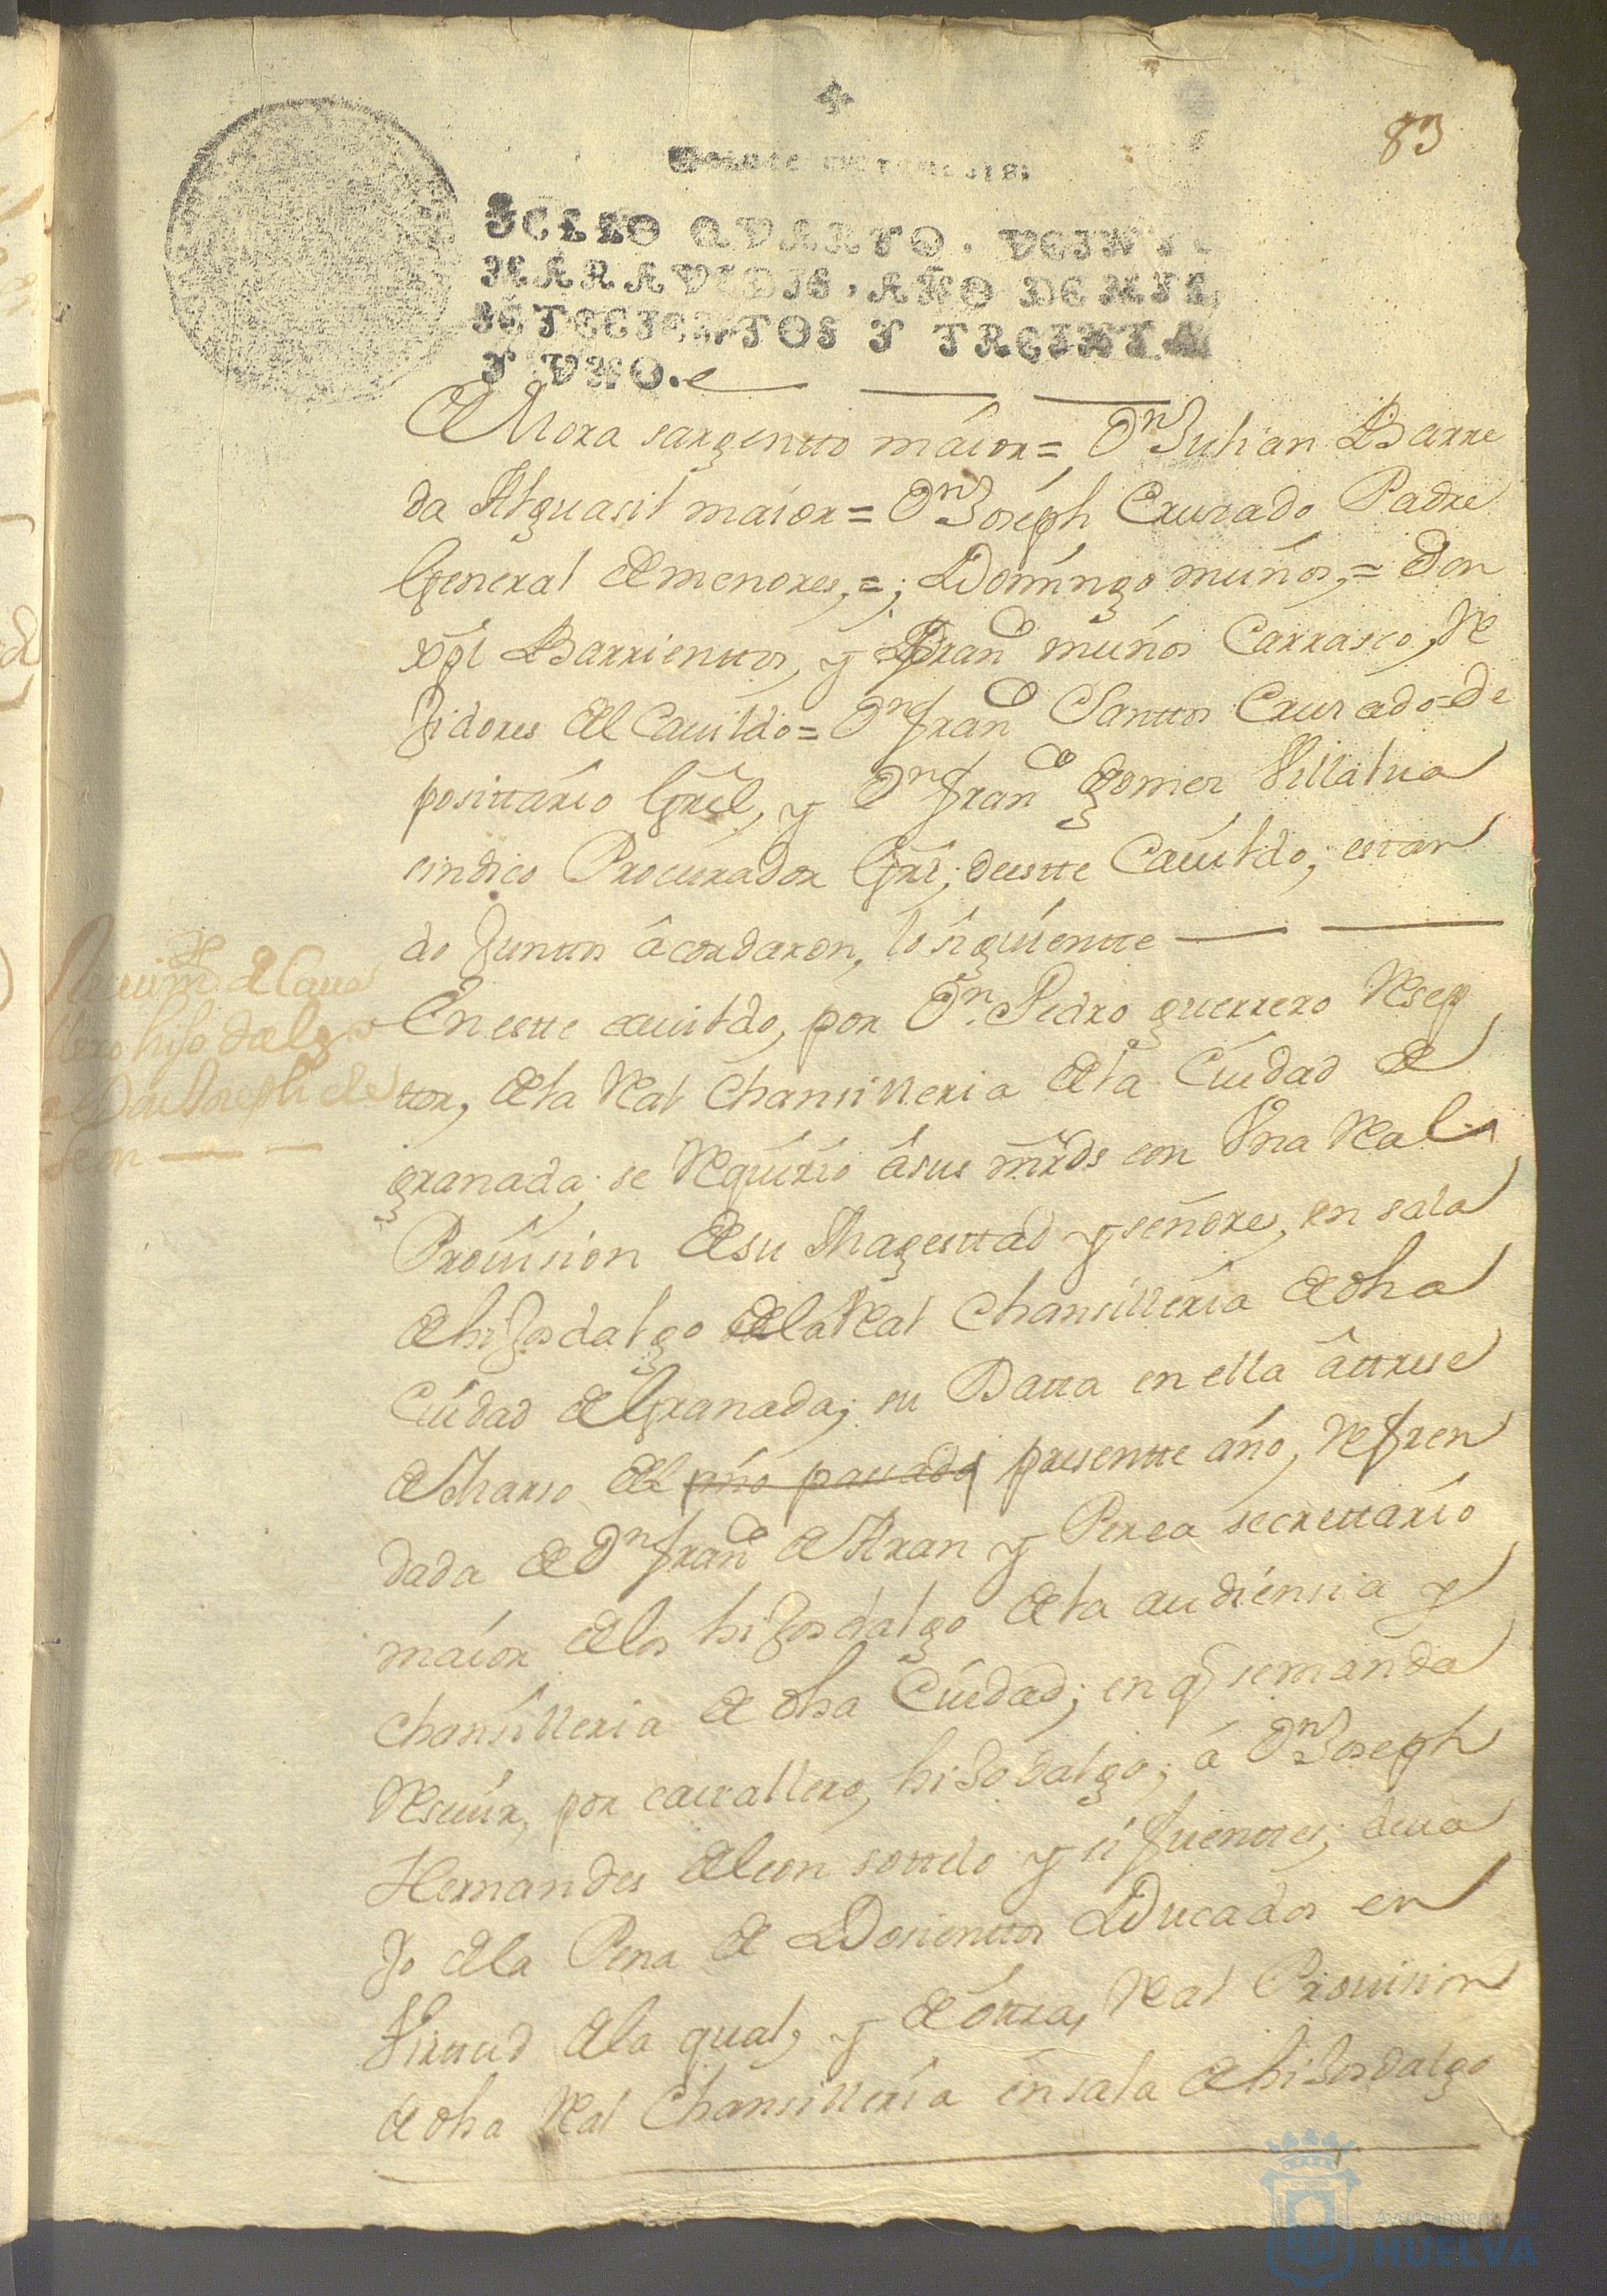 83
SELLO QVARTO. VEINTE
MARAVEDIS, AÑO DE MIL
SETECIENTOS Y TREINTA
Y VNO.
de Mora sargentto maíor = Dn Julian Barre
da Alguasil maíor = Dn Joseph Crusado Padre
General de menores, = ; Domíngo muños, = Don
xpl Barrienttos, y Franco muños Carrasco, Re
Jidores del Cauildo = Dn franco Santtos Crusado = de
posittario Grel, y Dn franco gomes Villalua
cindico Procurador Grl; deestte Cauildo; estan
do Junttos âcordaron, lo siguientte
Recivimto de Cava
llero hijo dalgo
de Don Joseph de
Leon
En estte cauildo, por Dn. Pedro guerrero Resep
tor, de la Real Chansilleria de la Ciudad de
granada; se Requirio âsus mrds con Vna Real
Prouision de su Magesttad y señores, en sala
de hiJosdalgo de la Real Chansilleria de dha
Ciudad de Granada; su Datta en ella âttrese
de Marso del año passado presentte año, Refren
dada de Dn franco de Aran y Perea secrettario
maíor de los hiJosdalgo de la audiensia y
chansilleria de dha Ciudad; en q se manda
Resiuir, por cauallero, hiJo dalgo; á Dn Joseph
Hernandes de leon sottelo y sifuenttes; deua
Jo de la Pena de Dosienttos Ducados en
Virttud de la qual, y de ôttra, Real Prouision
de dha Real Chansilleria en sala de hiJosdalgo
Ayuntamiento de
HUELVA